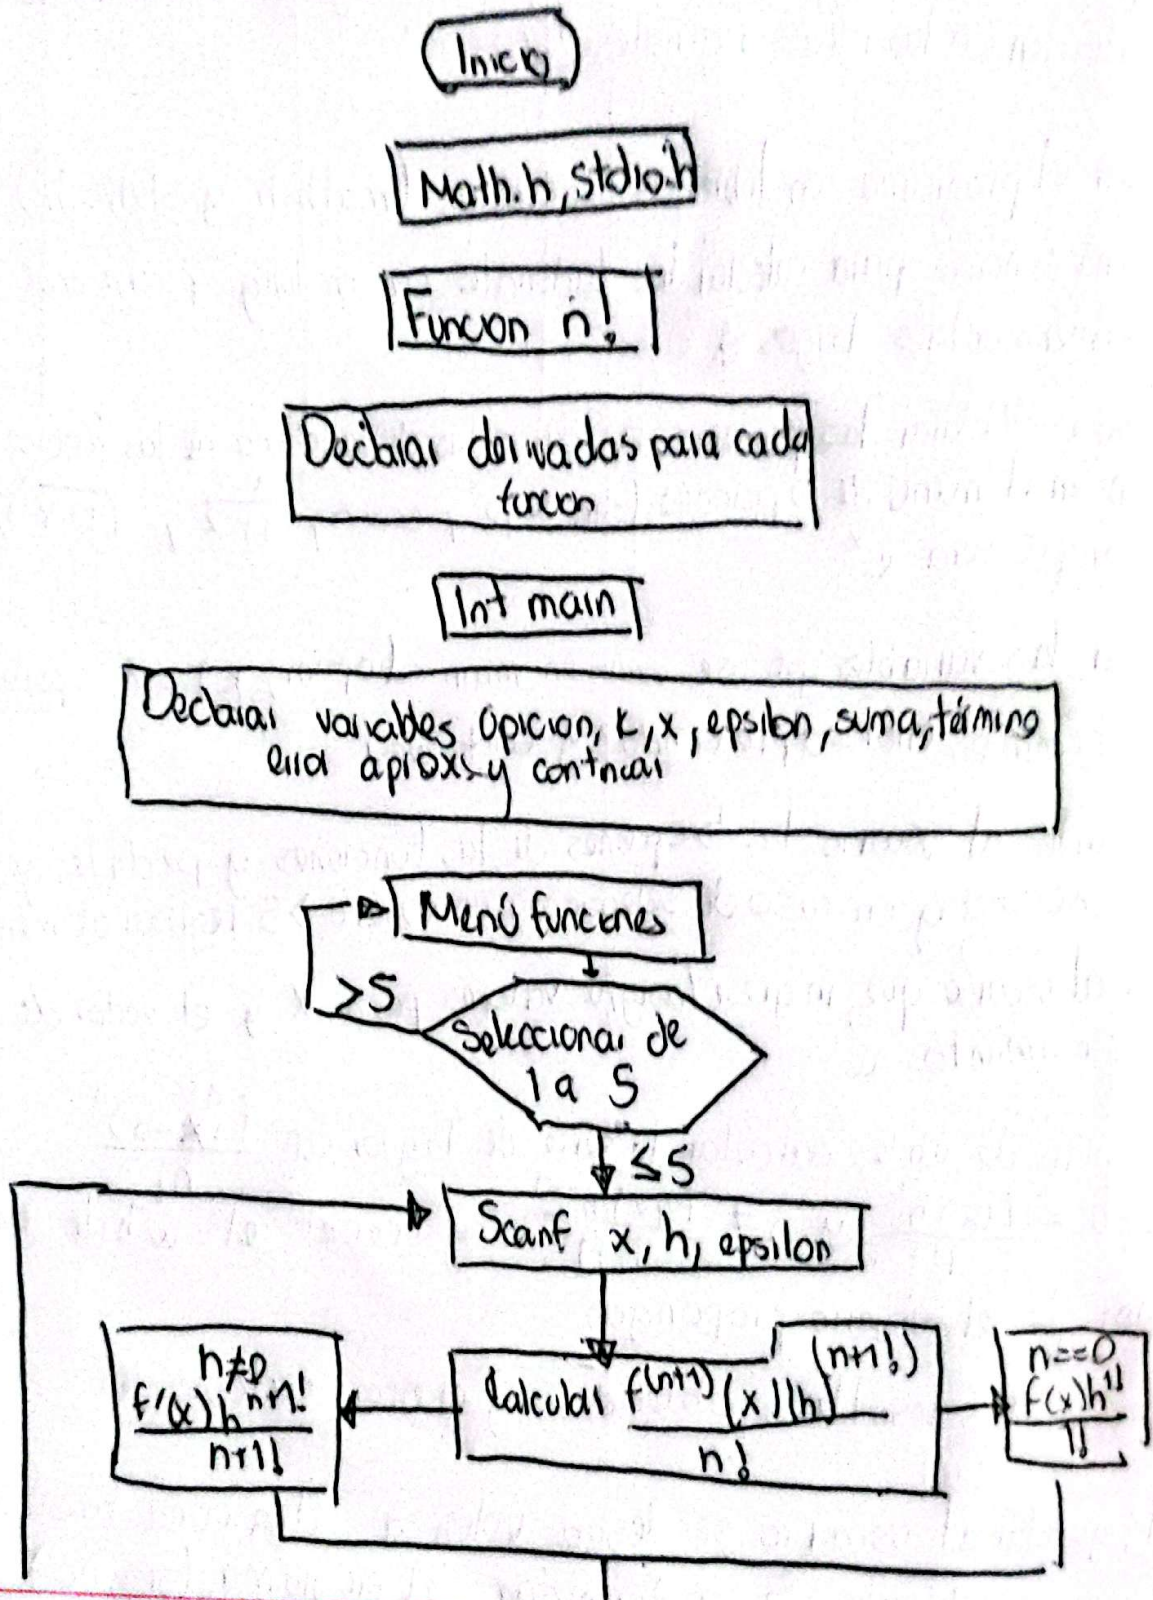 Inicio
Math.h, stdio.h
Funcion n!
Declarar derivadas para cada
funcion
Int main
Declarar variables opicion, k, x, epsilon, suma, término
error aproxs y continuar
Menú funciones
>5
Seleccionar de
1 a 5
≤5
Scanf x, h, epsilon
n≠0
f'(x)h^n+1!
n+1!
Calcular f^(n+1)(x)(h)^(n+1!)
n!
n==0
f(x)h^1!
1!